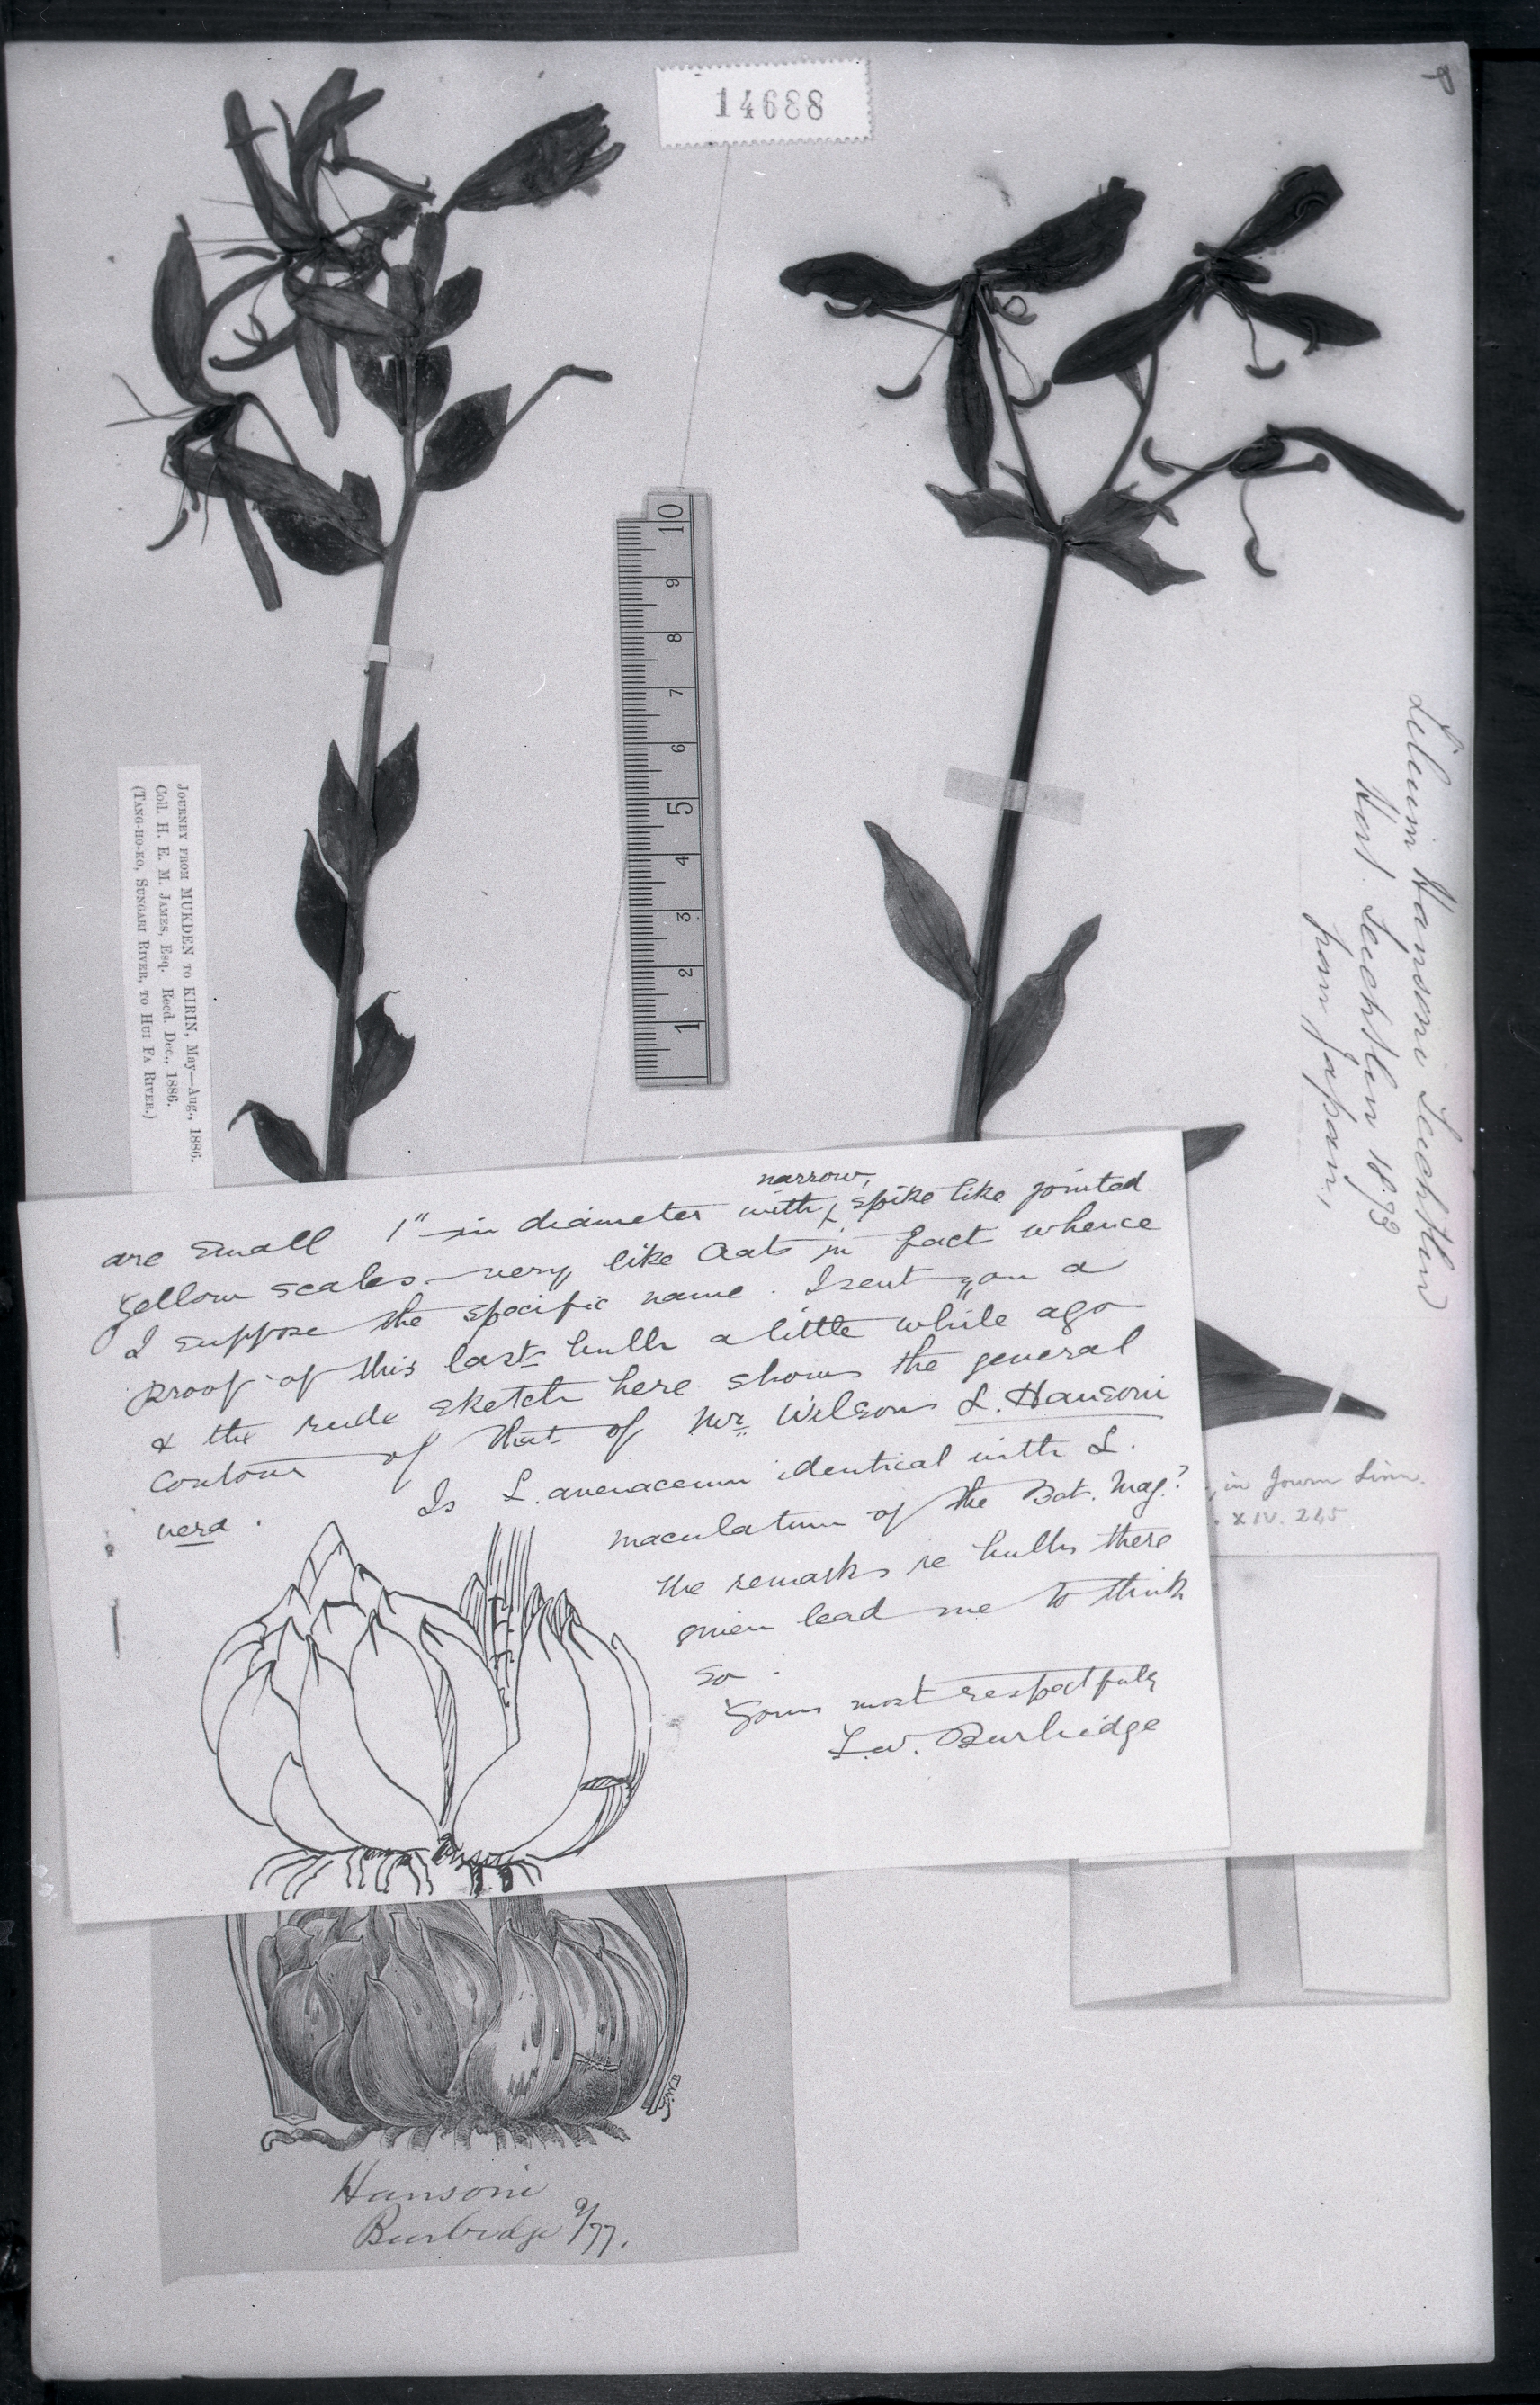 8
14688
10
9
8
7
6
5
4
3
2
1
JOURNEY FROM MUKDEN TO KIRIN, May—Aug., 1886.
Coll. H. E. M. JAMES, Esq. Recd. Dec., 1886.
(TANG-HO-KO, SUNGARI RIVER, TO HUI FA RIVER.)
Lilium Hansoni Leichtlin
Hort. Leichtlin 1873
from Japan,
narrow,
are small 1" in diameter with spike like jointed
yellow scales very like Oats in fact whence
I suppose the specific name. I sent you a
proof of this last bulb a little while ago
& the rude sketch here shows the general
contour of that of Mr Wilsons L. Hansoni
vera.
Is L. avenaceum identical with L.
maculatum of the Bot. Mag?
The remarks re bulbs there
given lead me to think
so.
Yours most respectfully
F.W. Burbidge
in Journ Linn.
XIV. 245
F.W.B
Hansoni
Burbidge 9/77.